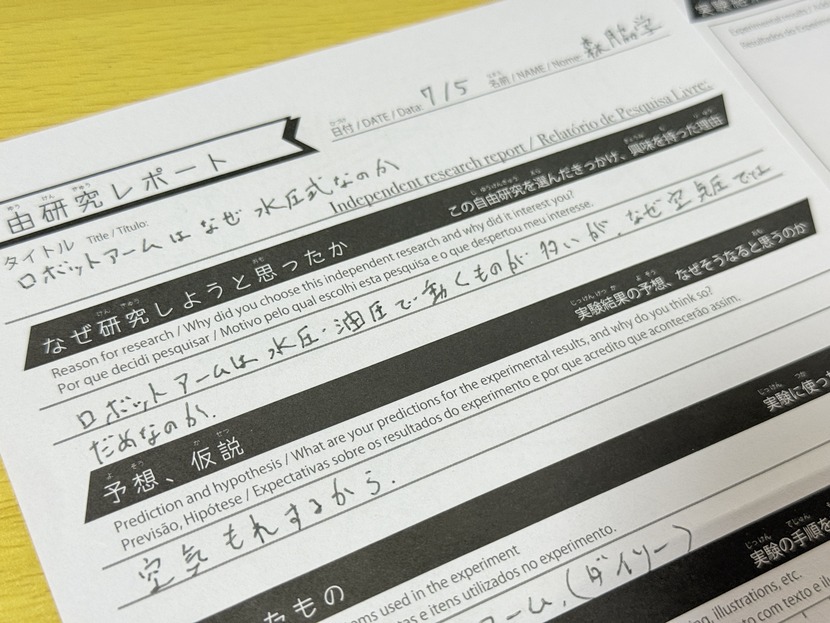 日付 / DATE / Data: 7/5 名前 / NAME / Nome: 森脇学
由研究レポート
Independent research report / Relatório de Pesquisa Livre:
タイトル Title / Titulo:
ロボットアームはなぜ水圧式なのか
なぜ研究しようと思ったか この自由研究を選んだきっかけ、興味を持った理由
Reason for research / Why did you choose this independent research and why did it interest you?
Por que decidi pesquisar / Motivo pelo qual escolhi esta pesquisa e o que despertou meu interesse.
ロボットアームは水圧・油圧で動くものが多いが、なぜ空気圧では
だめなのか.
予想、仮説 実験結果の予想、なぜそうなると思うのか
Prediction and hypothesis / What are your predictions for the experimental results, and why do you think so?
Previsão, Hipótese / Expectativas sobre os resultados do experimento e por que acredito que acontecerão assim.
空気もれするから.
たもの 実験に使っ
ems used in the experiment
tas e itens utilizados no experimento.
ーム,(ダイソー)
実験の手順を
ng, illustrations, etc.
to com texto e il